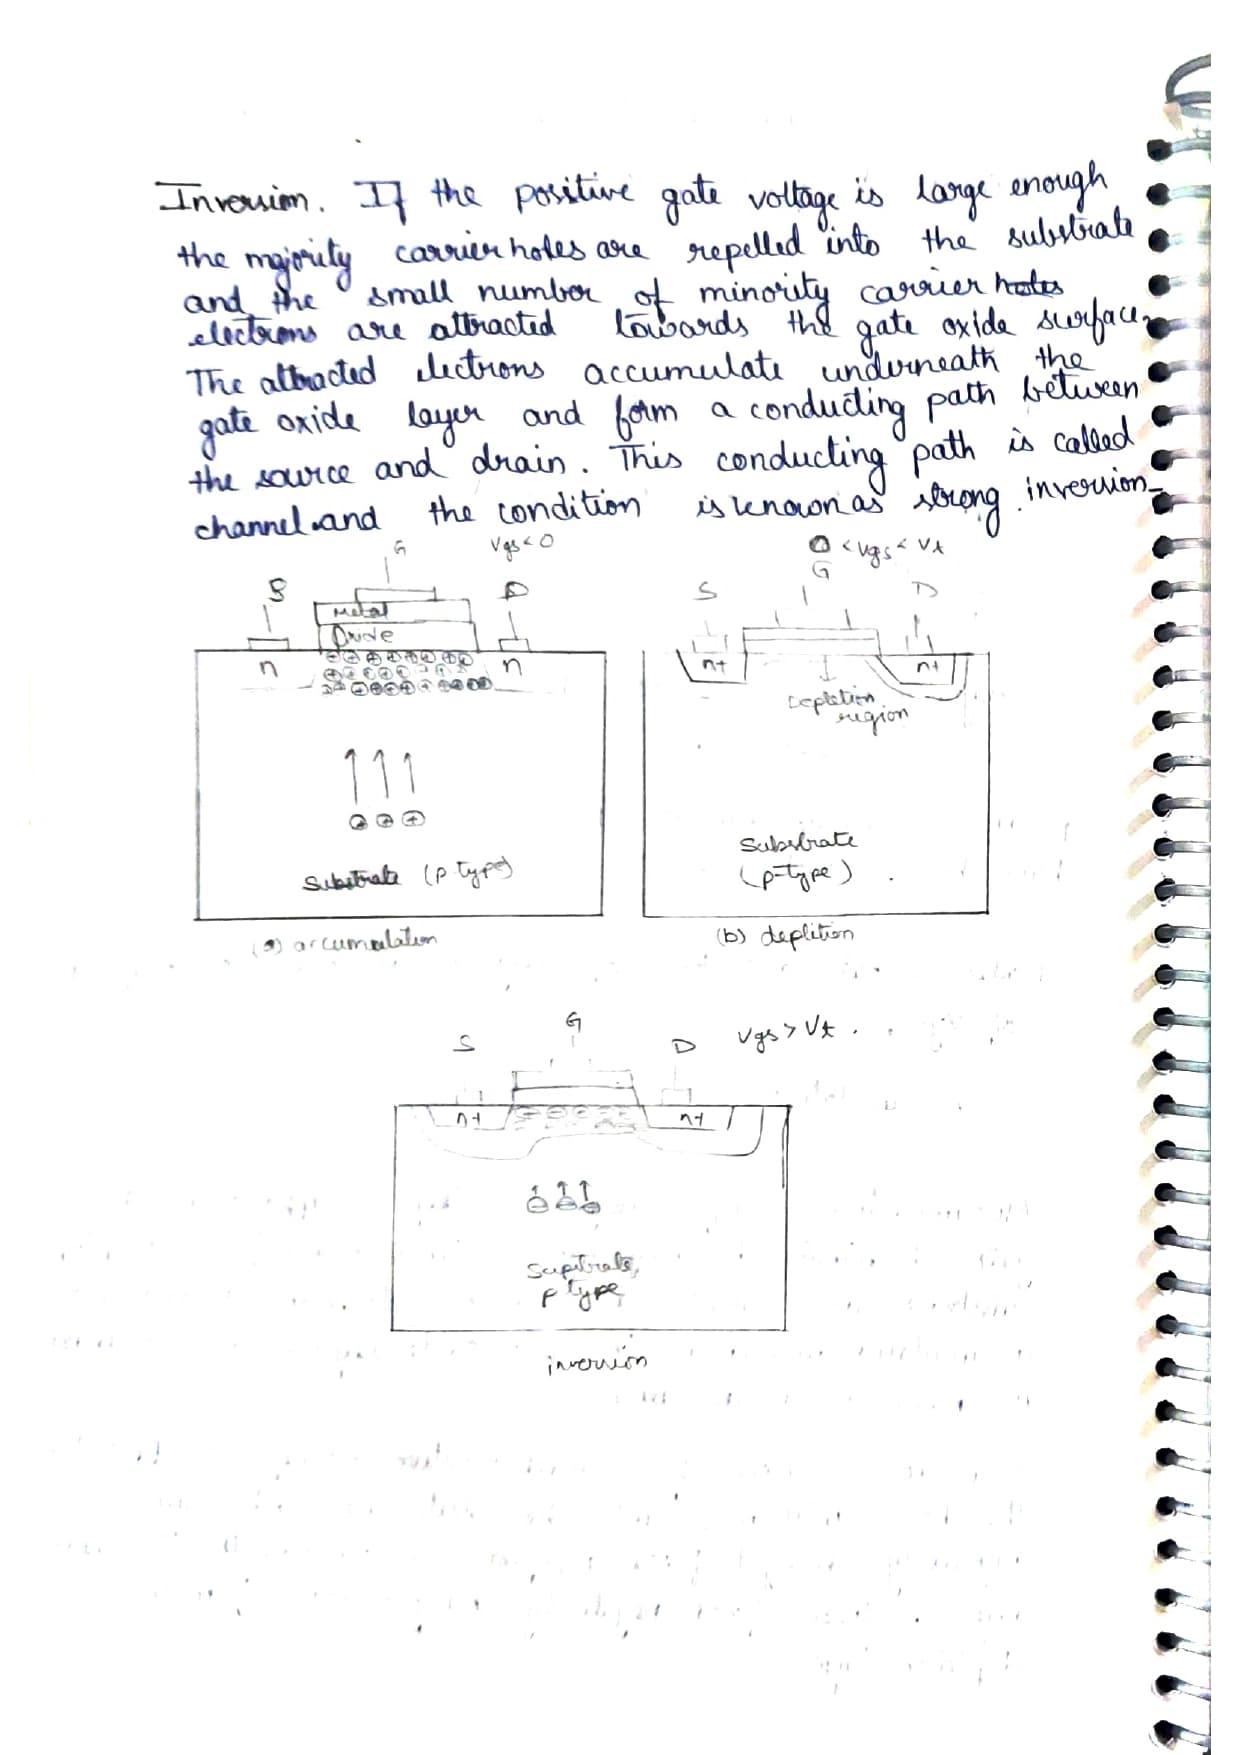 Inversion. If the positive gate voltage is large enough
the majority carrier holes are repelled into the substrate
and the small number of minority carrier holes
electrons are attracted towards the gate oxide surface.
The attracted electrons accumulate underneath the
gate oxide layer and form a conducting path between
the source and drain. This conducting path is called
channel and the condition is known as strong inversion
G Vgs<0
S D
Metal
Oxide
n n
Substrate (p type)
(a) accumulation
0 <Vgs< Vt
G
S D
n+ n+
Depletion
region
Substrate
(p-type)
(b) deplition
G
S D Vgs > Vt
n+ n+
Supstrate,
p type
inversion